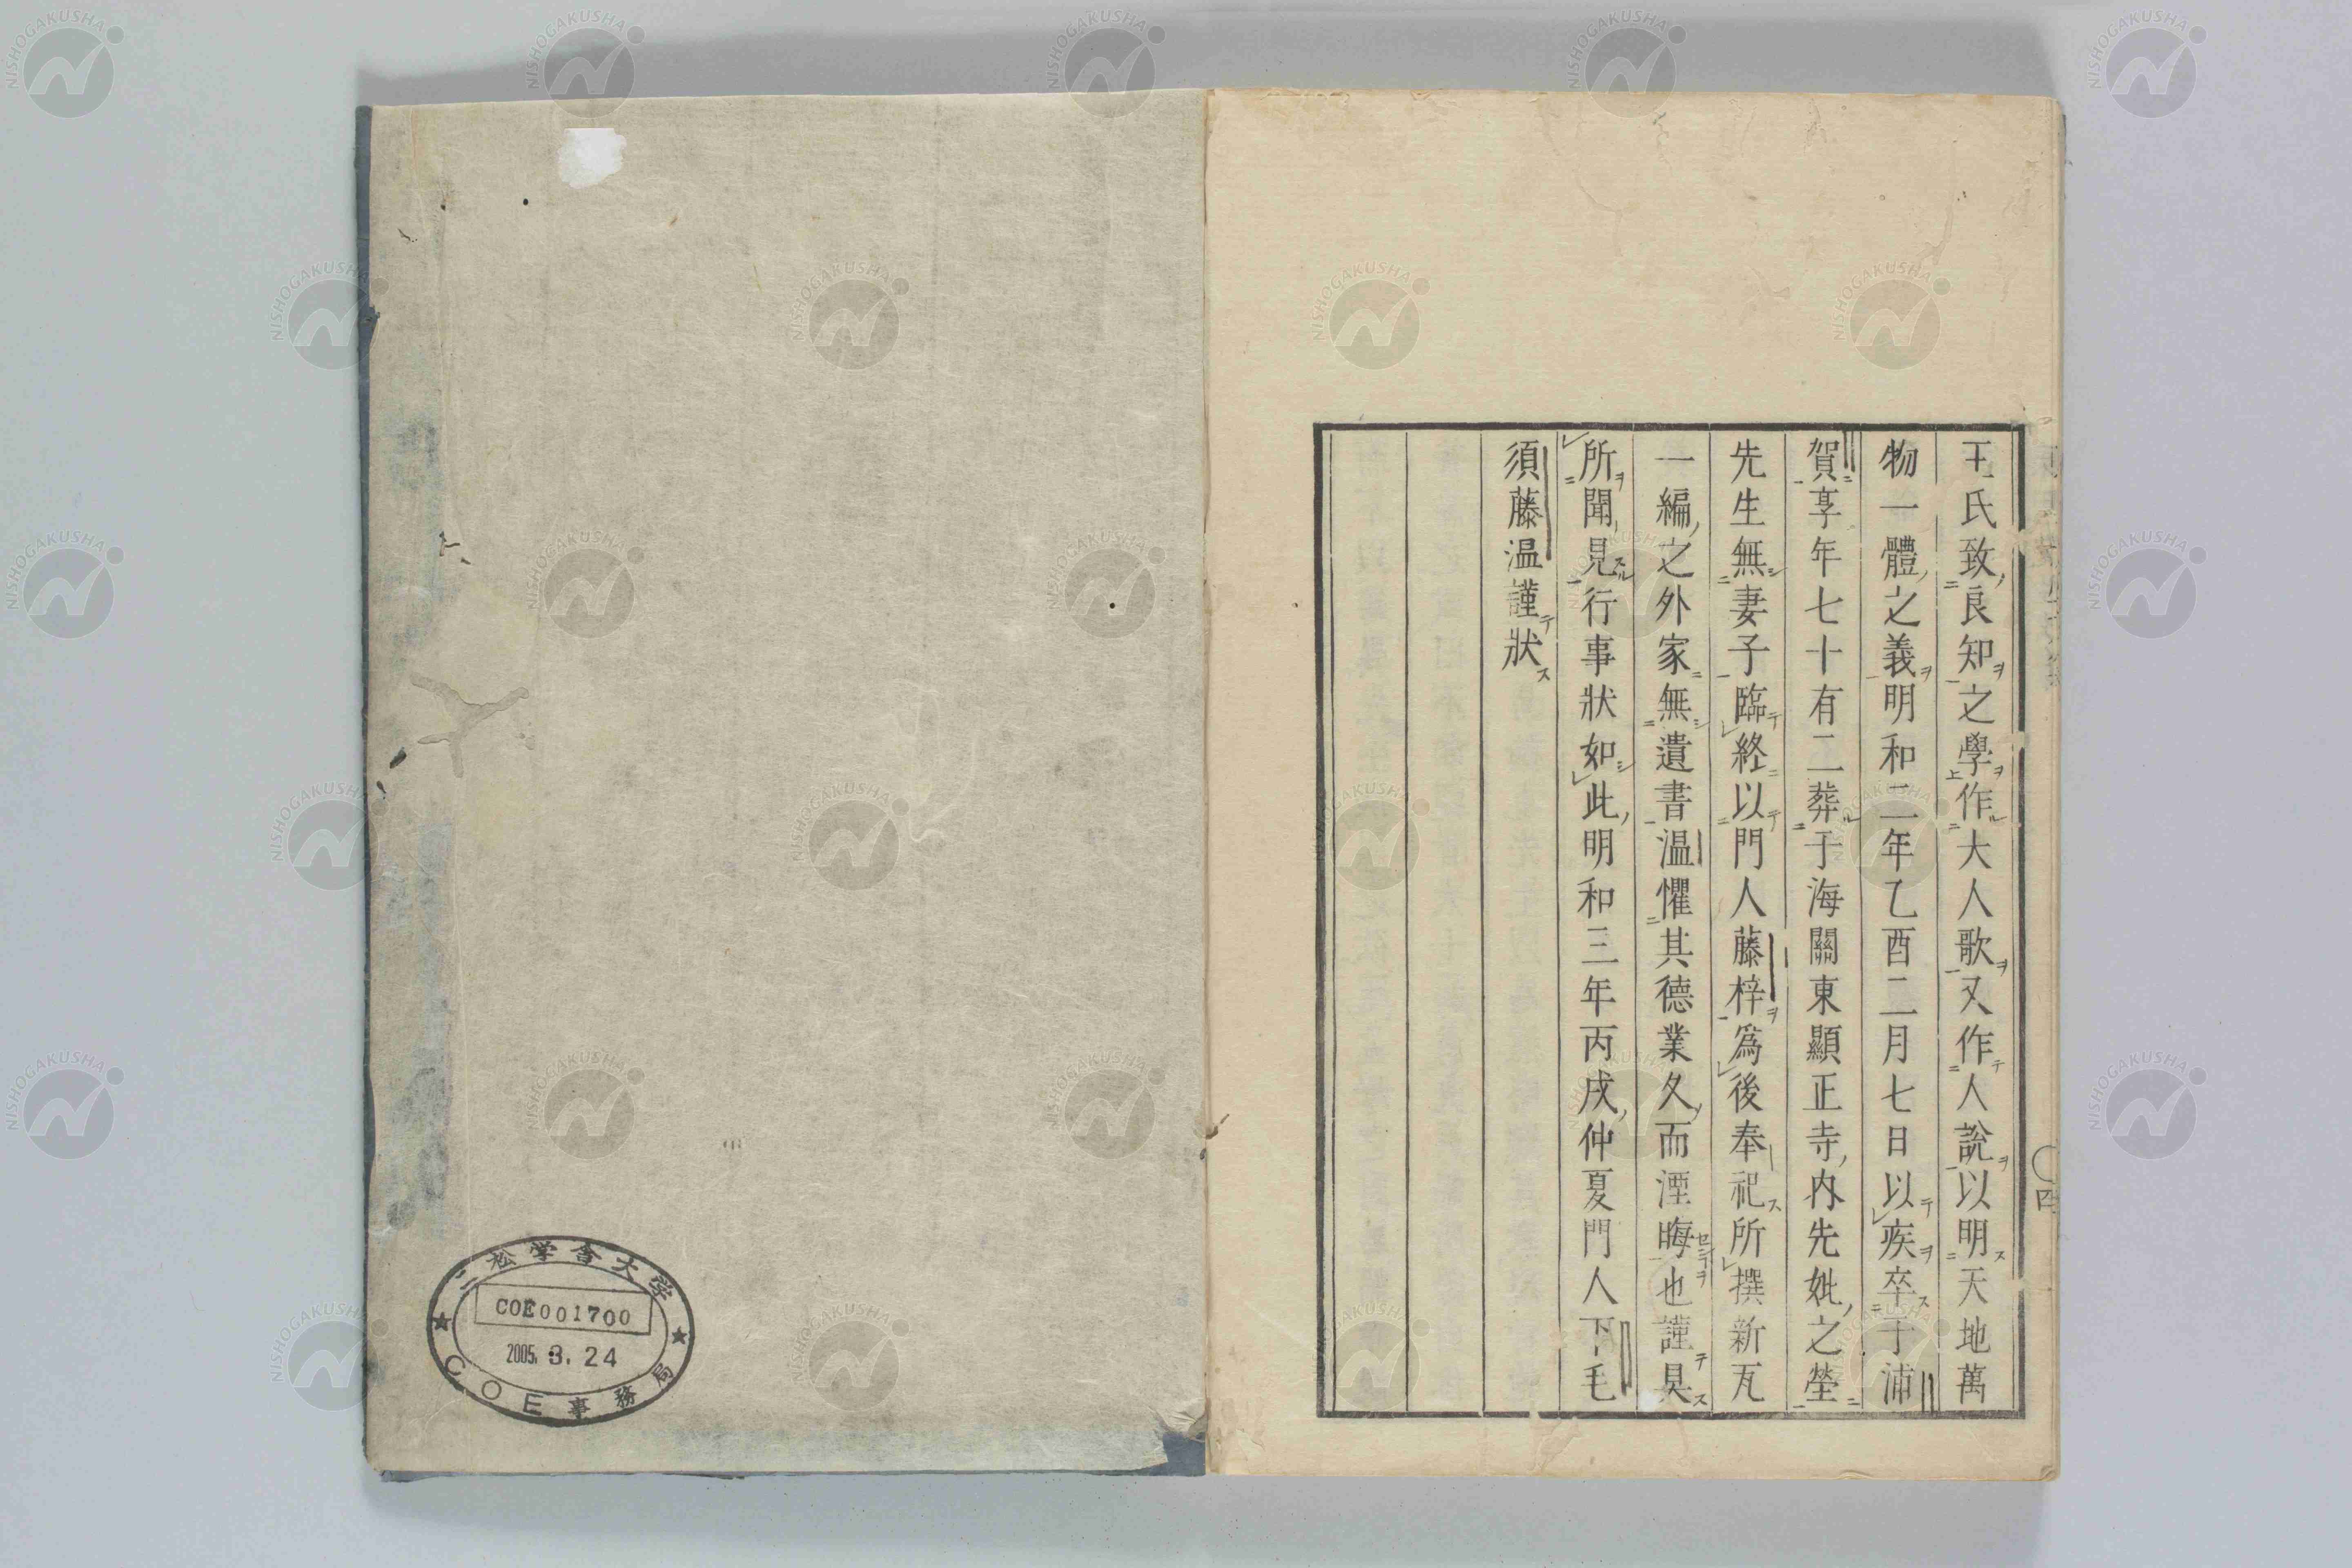 王氏致良知之學作大人歌又作人說以明天地萬
物一體之義明和二年乙酉二月七日以疾卒于浦
賀享年七十有二葬于海關東顯正寺内先妣之塋
先生無妻子臨終以門人藤梓爲後奉祀所撰新瓦
一編之外家無遺書温懼其德業久而湮晦也謹具
所聞見行事狀如此明和三年丙戌仲夏門人下毛
須藤温謹狀
二松学舎大学
COE001700
2005. 3. 24
COE事務局
NISHOGAKUSHA